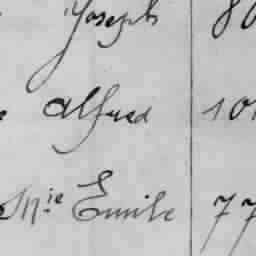 Joseph 80
Alfred 101
Mie Emile 77